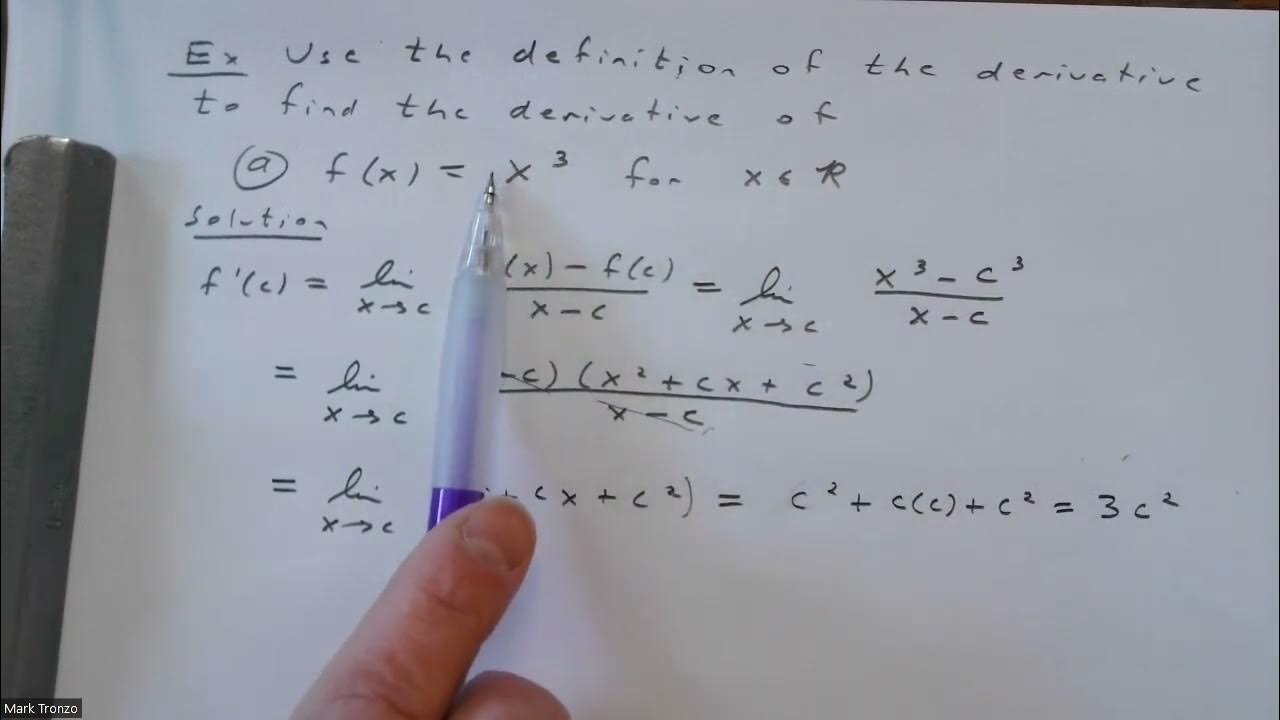 Ex Use the definition of the derivative
to find the derivative of
(a) f(x) = x³ for x ∈ ℝ
Solution
f'(c) = lim x→c (x) - f(c) / x - c = lim x→c x³ - c³ / x - c
= lim x→c -c) (x² + cx + c²) / x - c
= lim x→c + cx + c²) = c² + c(c) + c² = 3c²
Mark Tronzo